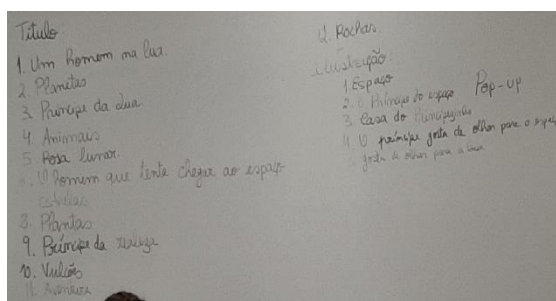 Título
1. Um homem na lua.
2. Planetas
3. Príncipe da lua.
4 Animais
5 Rosa lunar.
O homem que tenta chegar ao espaço
Estrelas
8. Plantas
9. Príncipe da realeza
10. Vulcões
11.
12. Rochas.
Ilustração:
1. Espaço
2. O Príncipe do espaço
3. Casa do Principezinho
Pop-up
4 O príncipe gosta de olhar para o espaço
gosta de olhar para a lua